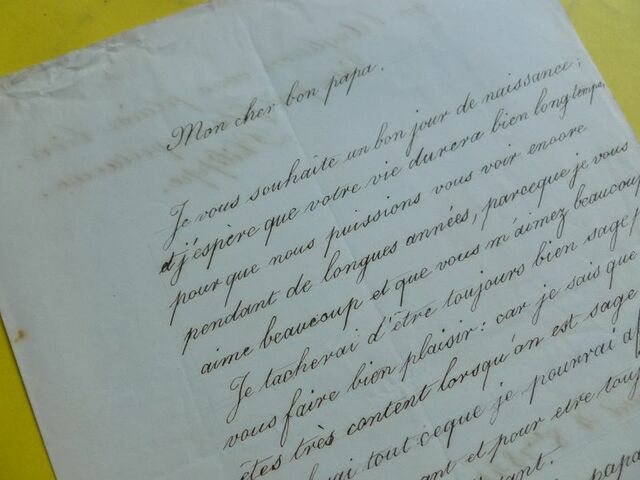 Mon cher bon papa.
Je vous souhaite un bon jour de naissance;
et j'espère que votre vie durera bien longtemps,
pour que nous puissions vous voir encore
pendant de longues années, parceque je vous
aime beaucoup et que vous m'aimez beaucoup
Je tacherai d'être toujours bien sage,
vous faire bien plaisir: car je sais que
êtes très content lorsqu'on est sage
tout ceque je pourrai
et pour etre
papa